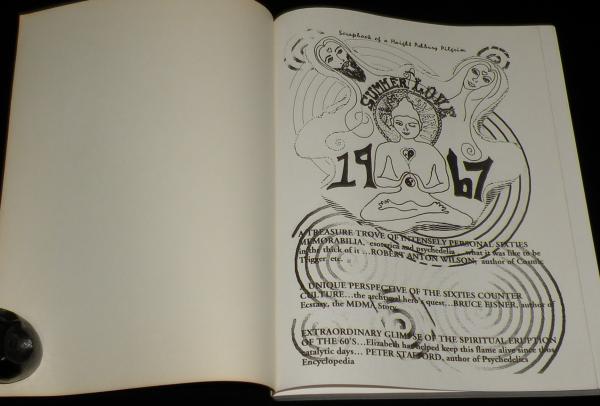 Scrapbook of a Haight Ashbury Pilgrim
SUMMER LOVE
19 67
A TREASURE TROVE OF INTENSELY PERSONAL SIXTIES
MEMORABILIA, esoterica and psychedelia ... what it was like to be
in the thick of it ...ROBERT ANTON WILSON, author of Cosmic
Trigger, etc.
UNIQUE PERSPECTIVE OF THE SIXTIES COUNTER
CULTURE...the archtypal hero's quest...BRUCE EISNER, author of
Ecstasy, the MDMA Story.
EXTRAORDINARY GLIMPSE OF THE SPIRITUAL ERUPTION
OF THE 60'S...Elizabeth has helped keep this flame alive since thos
catalytic days... PETER STAFFORD, author of Psychedelics
Encyclopedia